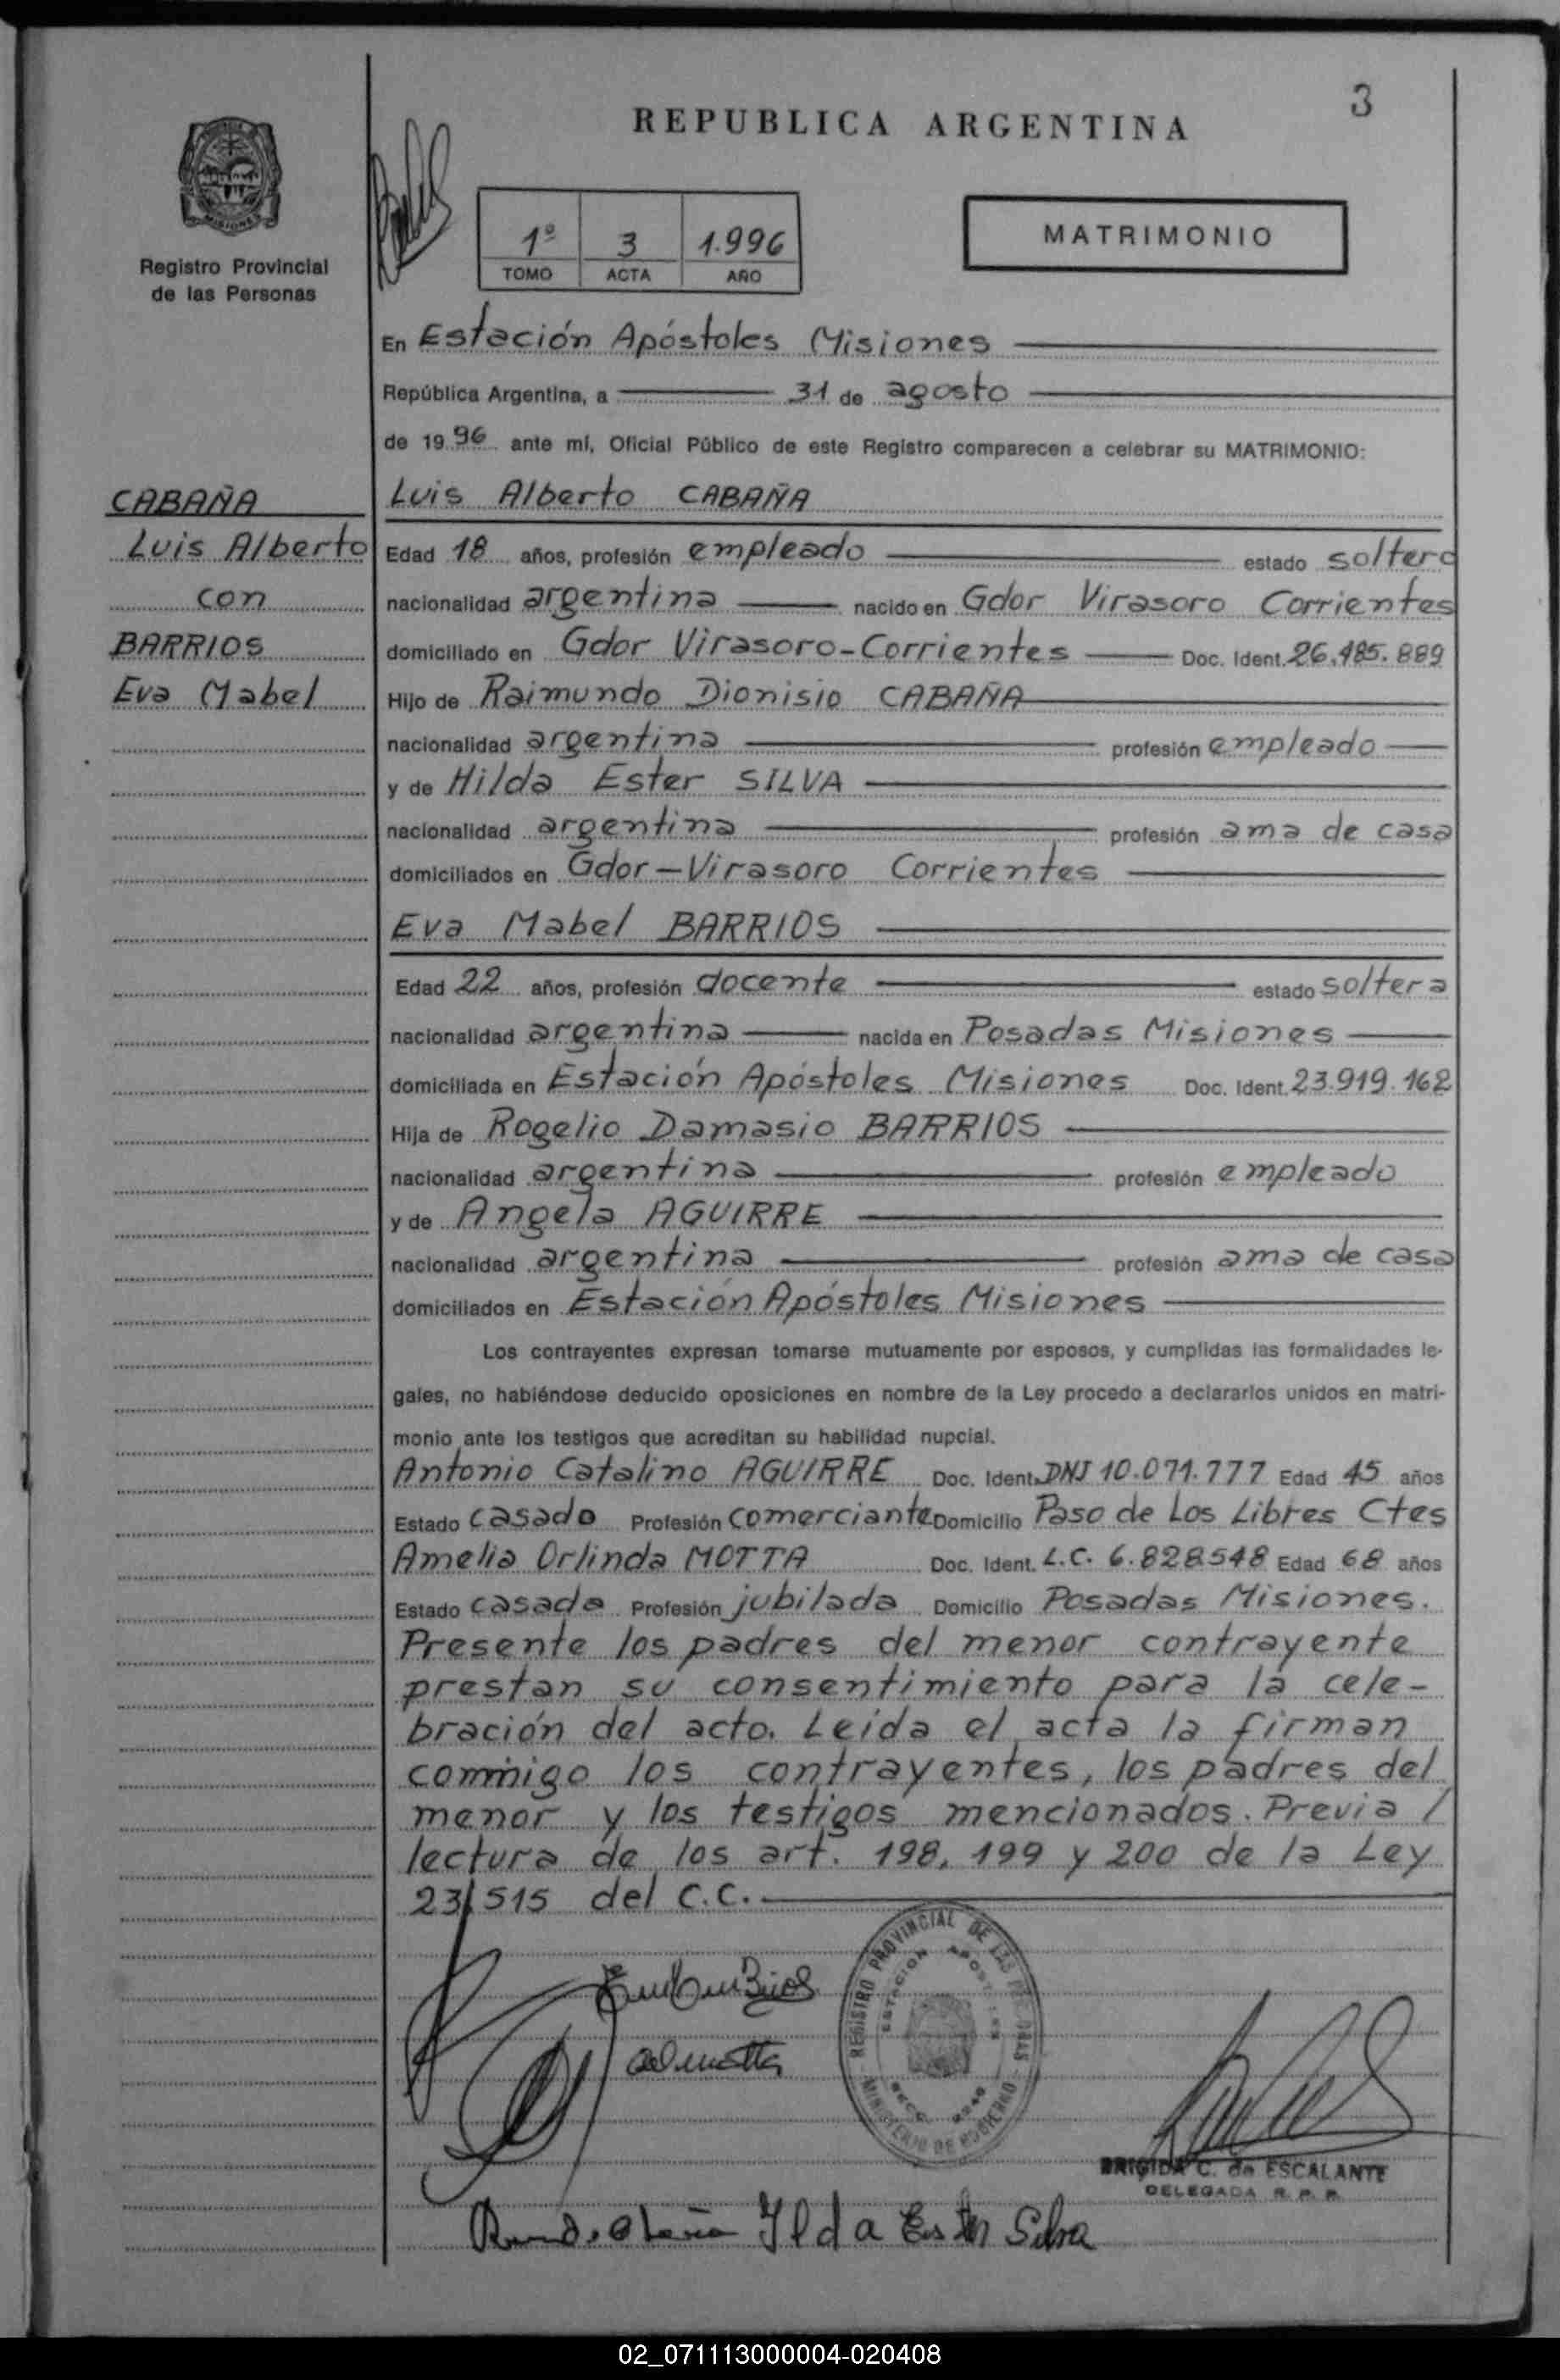 3
REPUBLICA ARGENTINA
MISIONES
Registro Provincial
de las Personas
1º 3 1.996
TOMO ACTA AÑO
MATRIMONIO
En Estación Apóstoles Misiones
República Argentina, a 31 de agosto
de 19 96 ante mí, Oficial Público de este Registro comparecen a celebrar su MATRIMONIO:
CABAÑA
Luis Alberto
con
BARRIOS
Eva Mabel
Luis Alberto CABAÑA
Edad 18 años, profesión empleado estado soltero
nacionalidad argentina nacido en Gdor Virasoro Corrientes
domiciliado en Gdor Virasoro-Corrientes Doc. Ident. 26.485.889
Hijo de Raimundo Dionisio CABAÑA
nacionalidad argentina profesión empleado
y de Hilda Ester SILVA
nacionalidad argentina profesión ama de casa
domiciliados en Gdor-Virasoro Corrientes
Eva Mabel BARRIOS
Edad 22 años, profesión docente estado soltera
nacionalidad argentina nacida en Posadas Misiones
domiciliada en Estación Apóstoles Misiones Doc. Ident. 23.919.162
Hija de Rogelio Damasio BARRIOS
nacionalidad argentina profesión empleado
y de Angela AGUIRRE
nacionalidad argentina profesión ama de casa
domiciliados en Estación Apóstoles Misiones
Los contrayentes expresan tomarse mutuamente por esposos, y cumplidas las formalidades le-
gales, no habiéndose deducido oposiciones en nombre de la Ley procedo a declararlos unidos en matri-
monio ante los testigos que acreditan su habilidad nupcial.
Antonio Catalino AGUIRRE Doc. Ident. DNI 10.071.777 Edad 45 años
Estado casado Profesión comerciante Domicilio Paso de Los Libres Ctes
Amelia Orlinda MOTTA Doc. Ident. L.C. 6.828548 Edad 68 años
Estado casada Profesión jubilada Domicilio Posadas Misiones.
Presente los padres del menor contrayente
prestan su consentimiento para la cele-
bración del acto. Leída el acta la firman
conmigo los contrayentes, los padres del
menor y los testigos mencionados. Previa /
lectura de los art. 198, 199 y 200 de la Ley
23.515 del C.C.
REGISTRO PROVINCIAL DE LAS PERSONAS
ESTACION APOSTOLES
MINISTERIO DE GOBIERNO
BRIGIDA C. de ESCALANTE
DELEGADA R. P. P.
Ilda Ester Silva
02_071113000004-020408